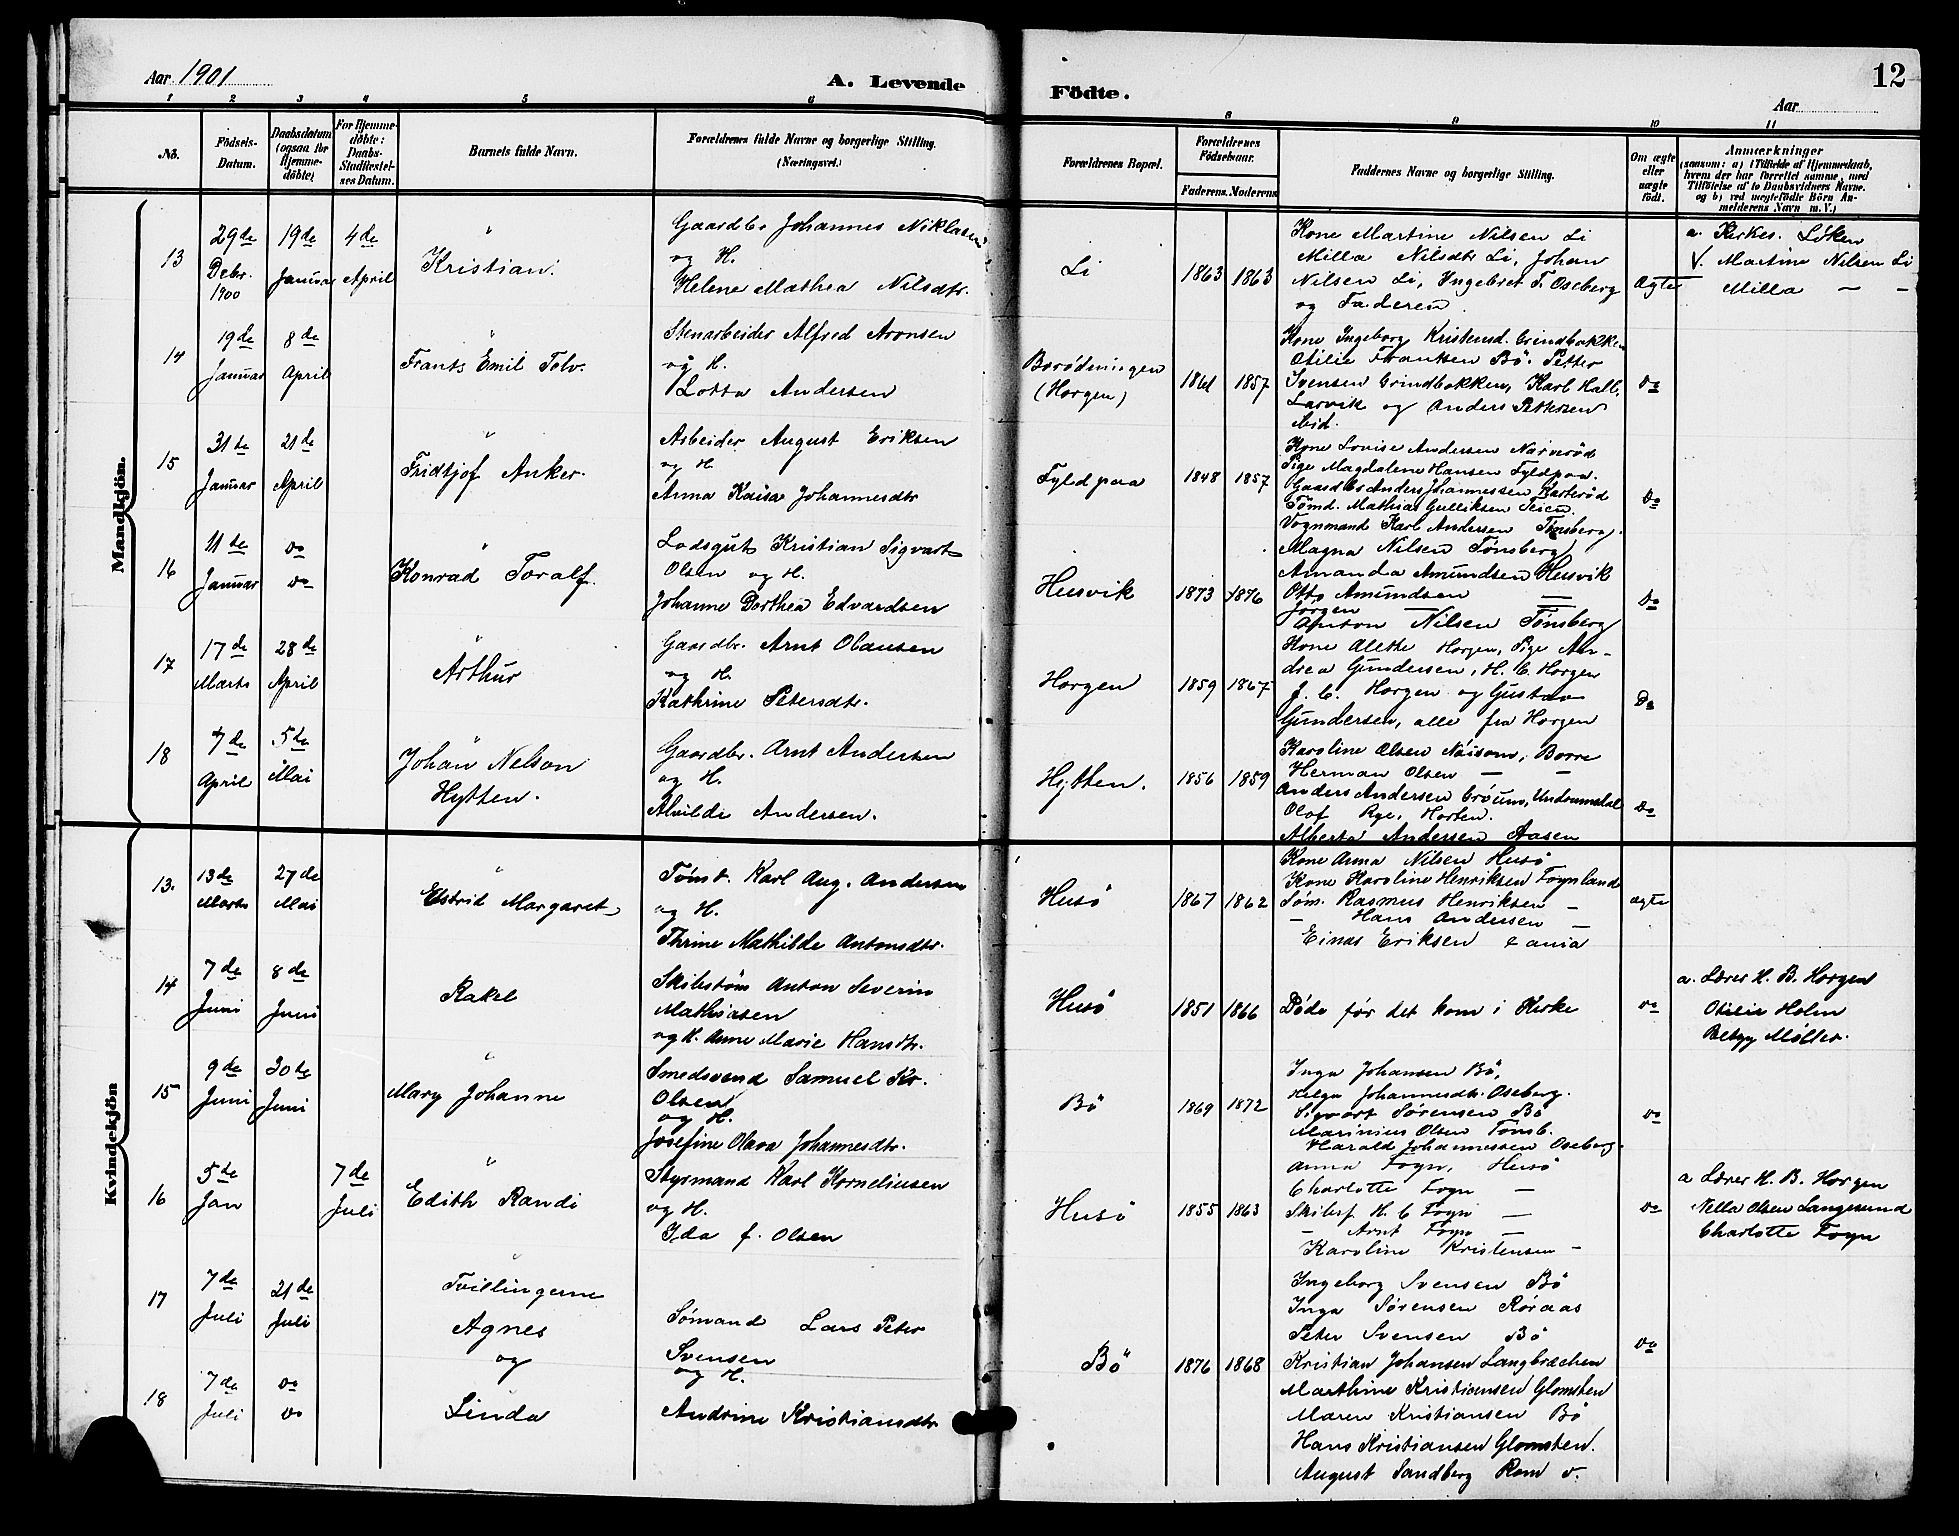 Aar 1901
A. Levende
Födte.
Aar
12
1 2 3 4 5 6 8 9 10 11
No.
Födsels-Datum.
Daabsdatum (ogsaa for Hjemmedöbte)
For Hjemmedöbte: Daabs-Stadfæstelses Datum.
Barnets fulde Navn.
Forældrenes fulde Navne og borgerlige Stilling. (Næringsvei.)
Forældrenes Bopæl.
Forældrenes Födselsaar.
Faderens. Moderens
Faddernes Navne og borgerlige Stilling.
Om ægte eller uægte født.
Anmærkninger
(saasom: a) i Tilfælde af Hjemmedaab, hvem der har forrettet samme, med Tilföielse af to Daabsvidners Navne. og b) ved uægtefödte Börn Anmelderens Navn m. V.)
Mandkjön.
13
29de Debr. 1900
19de Januar
4de April
Kristian.
Gaardbr Johannes Niklasen
og H.
Helene Mathea Nilsdtr.
Li
1863 1863
Kone Martine Nilsen Li
Milla Nilsdtr Li, Johan
Nilsen Li, Ingebret F. Oseberg
og Faderen
Ægte
a. Kirkes. Löken
V. Martine Nilsen Li
Milla — —
14
19de Januar
8de April
Frants Emil Tolv.
Stenarbeider Alfred Aronsen
og H.
Lotta Andersen
(Horgen)
1861 1857
Kone Ingeborg Kristensd. Grindbakken
Otilie Frantsen Bö. Petter
Svensen Grindbakken, Karl Hall,
Larvik og Anders Pettersen
ibid.
do
15
31te Januar
21de April
Fridtjof Anker.
Arbeider August Eriksen
og H
Anna Kaisa Johannesdtr
Fyldpaa
1848 1857
Kone Lovise Andersen Narverød
Pige Magdalene Hansen Fyldpaa.
Gaardbr Anders Johannessen Barterød
Tömd. Mathias Gulliksen
Vognmand Karl Andersen Tønsberg.
do
16
11te Januar
do do
Konrad Toralf.
Lodsgut Kristian Sigvart
Olsen og H.
Johanne Dorthea Edvardsen
Husvik
1873 1876
Magna Nilsen Tønsberg
Amanda Amundsen Husvik
Otto Amundsen —
Jørgen — —
Anton Nilsen Tønsberg
do
17
17de Marts
28de April
Arthur
Gaardbr. Arnt Olausen
og H.
Kathrine Petersdtr.
Horgen
1859 1867
Kone Alette Horgen, Pige An-
drea Gundersen, H. C. Horgen
J. C. Horgen og Gustav
Gundersen, alle fra Horgen
Do
18
7de April
5te Mai
Johan Nelson
Hytten.
Gaardbr. Arnt Andersen
og H.
Alvilde Andersen.
Hytten.
1856 1859
Karoline Olsen Borre
Herman Olsen — —
Anders Andersen
Olof Rye, Horten.
Alberta Andersen Aasen
do
Kvindekjön
13.
13de Marts
27de Mai
Estrid Margaret
Tömt. Karl Aug. Andersen
og H.
Thrine Mathilde Antonsdtr.
Husö
1867 1862
Kone Anna Nilsen Husö
Kone Karoline Henriksen Fognland
Søm. Rasmus Henriksen —
— Hans Andersen —
Einar Eriksen
ægte
14
7de Juni
8de Juni
Rakel
Skibstøm Anton Severin
Mathiasen
og H. Anne Marie Hansdtr.
Husö
1851 1866
Døde før det kom i Kirke
do
a. Lærer H. B. Horgen
Otilie Holm
Betzy Møller.
15
9de Juni
30te Juni
Mary Johanne
Smedsvend Samuel Kr.
Olsen
og H.
Josefine Olava Johannesdtr.
Bö
1869 1872
Inga Johansen Bö,
Helga Johannesdtr. Oseberg.
Sigvart Sørensen Bö
Marinius Olsen Tönsb.
Harald Johannessen Oseberg.
do
16
5te Jan
7de Juli
Edith Randi
Styrmand Karl Korneliusen
og H.
Ida f. Olsen
Husö
1855 1863
Anna Fogn, Husö
Charlotte Fogn —
Skibsf. H. C Fogn —
— Arnt Fogn —
Karoline Kristensen —
do
a Lærer H. B. Horgen
Nella Olsen Langesund
Charlotte Fogn
17
7de Juli
21de Juli
Tvillingerne
Agnes
og
Sömand Lars Peter
Svensen
og H.
Bö
1876 1868
Ingeborg Svensen Bö
Inga Sørensen Röraas
Peter Svensen Bö
Kristian Johansen Langbrækken
Marthine Kristiansen Glomsten
Maren Kristiansen Bö
Hans Kristiansen Glomsten.
August Sandberg Rom v.
do
18
7de Juli
do do
Linda
Andrine Kristiansdtr